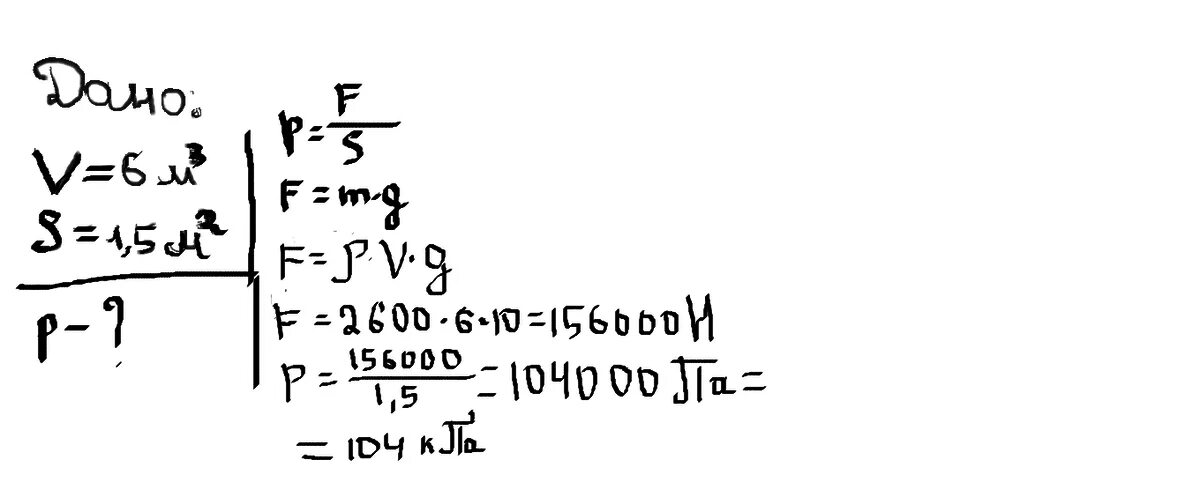 Дано:
V=6 м³
S=1,5 м²
p-?
p=F/S
F=m·g
F=ρ·V·g
F=2600·6·10=156000Н
P=156000/1,5=104000 Па=
=104 кПа